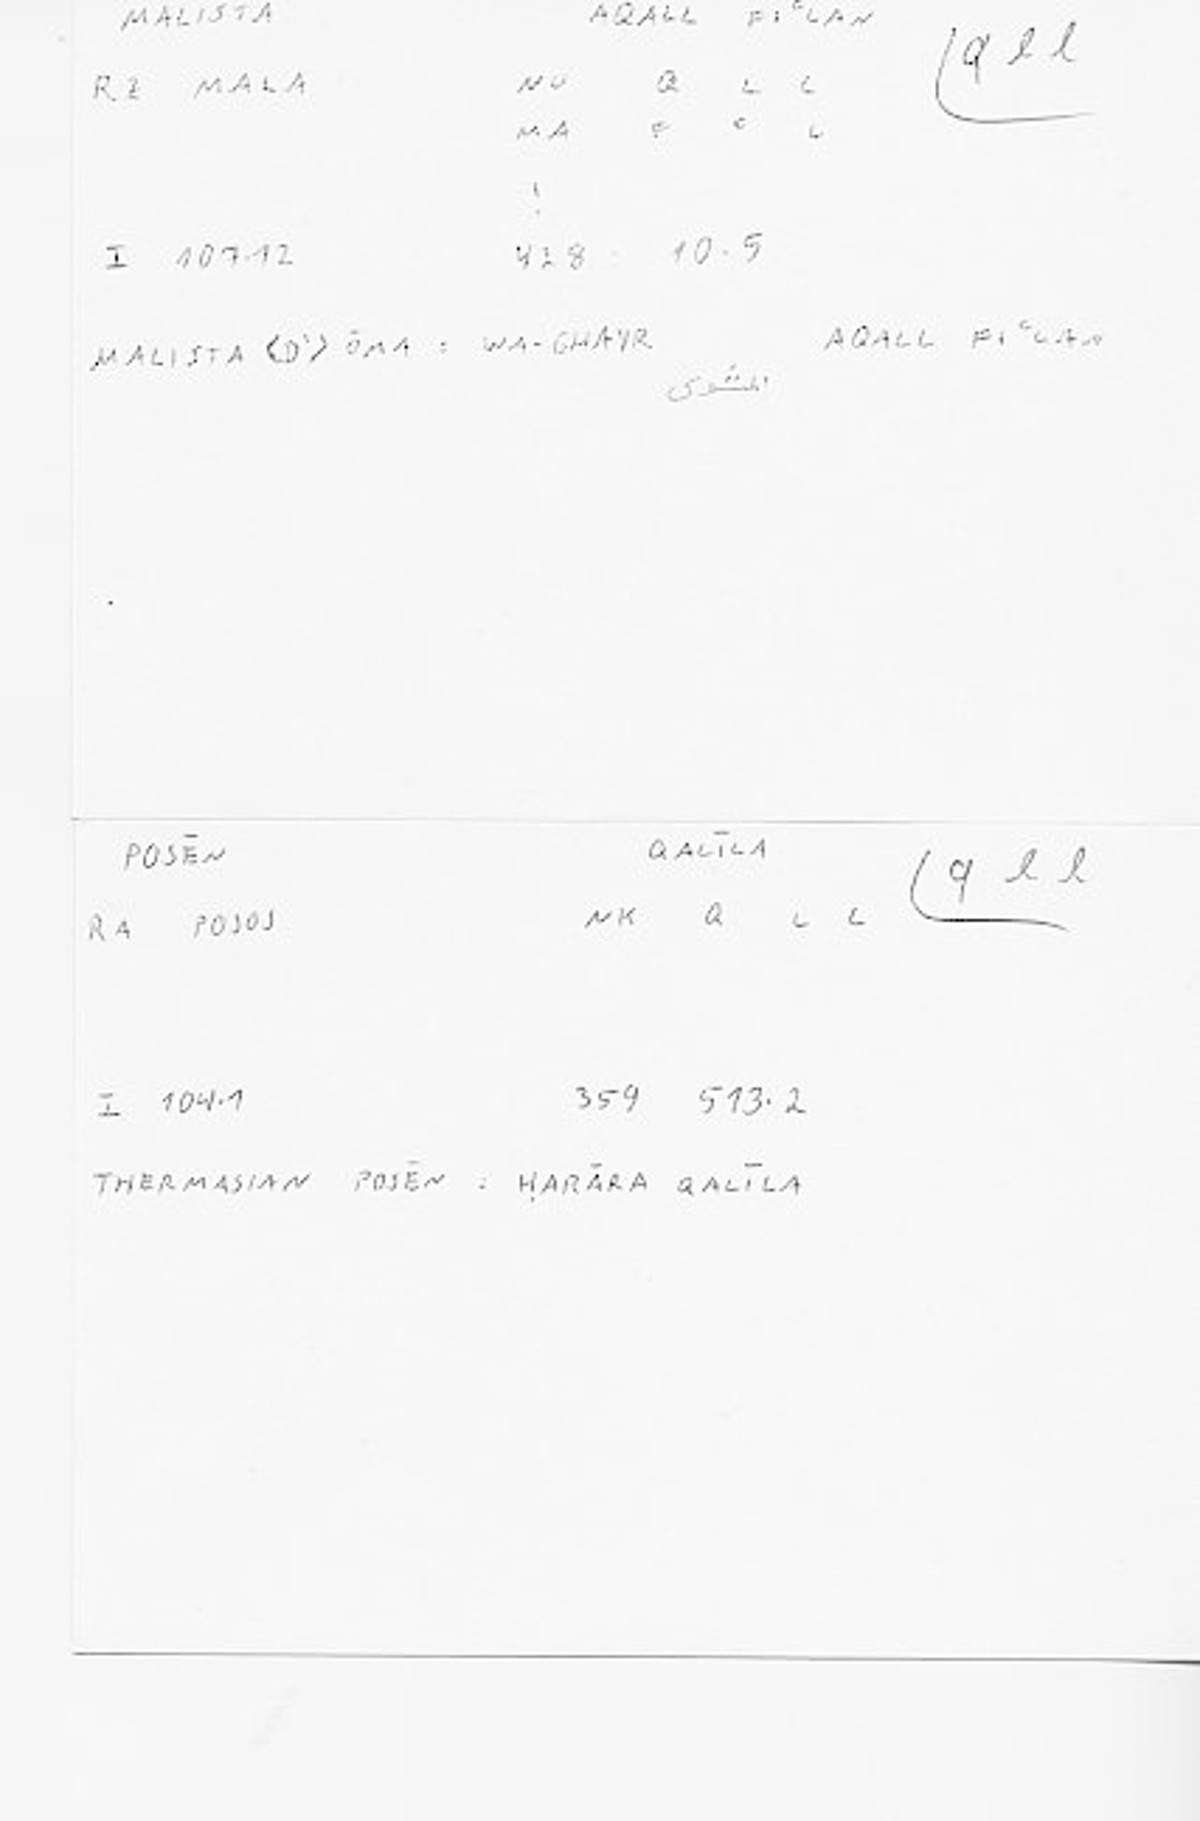 MALISTA AQALL FIᶜLAN
qll
RZ MALA NU Q L L
MA F ᶜ L
!
I 107.12 428 10.5
MALISTA ⟨D'⟩ ŌMA : WA-GHAYR AQALL FIᶜLAN
POSĒN QALĪLA
qll
RA POSOS NK Q L L
I 104.1 359 513.2
THERMASIAN POSĒN : ḤARĀRA QALĪLA